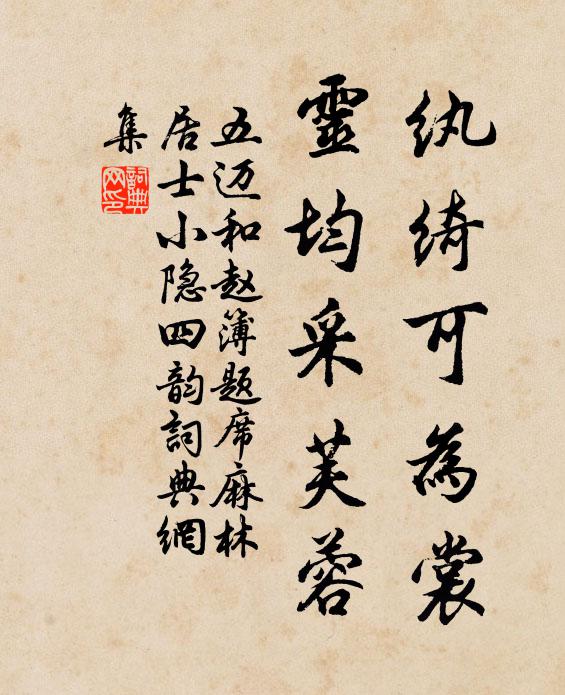 纨綺可為裳
靈均采芙蓉
五迈和赵簿题席麻林
居士小隐四韵詞典網
集
詞典
网印